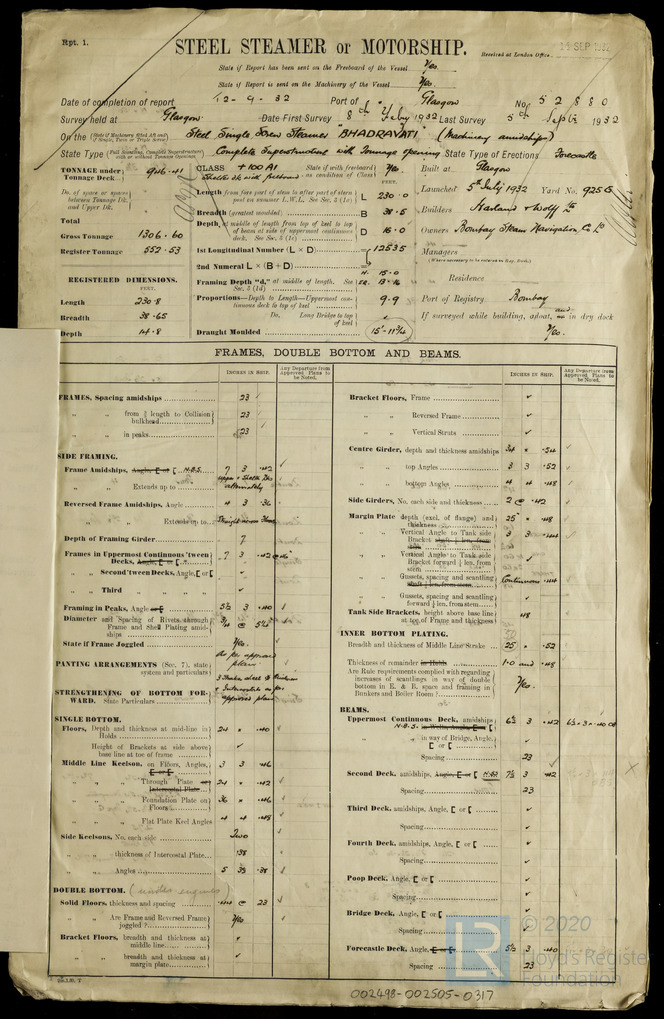 Rpt. 1.
STEEL STEAMER or MOTORSHIP.
Received at London Office
State if Report has been sent on the Freeboard of the Vessel Yes.
State if Report is sent on the Machinery of the Vessel Yes.
Date of completion of report 12-9-32 Port of Glasgow No. 52880
Survey held at Glasgow Date First Survey 8th Feby 1932 Last Survey 5th Sept 1932
On the Steel Single Screw Steamer "BHADRAVATI" (Machinery amidships)
State Type Complete Superstructure with Tonnage opening State Type of Erections Forecastle
TONNAGE under Tonnage Deck 946.41
CLASS +100A1 State if with freeboard as condition of Class Yes.
Built at Glasgow
Launched 5th July 1932 Yard No. 925G
Length from fore part of stem to after part of stern post on summer L.W.L. See Sec. 3 (1a) L 230.0
Breadth (greatest moulded) B 38.5
Builders Harland & Wolff Ld
Depth, at middle of length from top of keel to top of beam at side of uppermost continuous deck. See Sec. 3 (1c) D 16.0
Total
Gross Tonnage 1306.60
Register Tonnage 552.53
Owners Bombay Steam Navigation Co Ld
1st Longitudinal Number (L × D) 12535
Managers
2nd Numeral L × (B + D)
Residence
REGISTERED DIMENSIONS.
FEET.
Framing Depth "d," at middle of length. See Sec. 3 (1d)
Proportions—Depth to Length—Uppermost continuous deck to top of keel 9.9
Port of Registry Bombay
Length 230.8
Breadth 38.65
Depth 14.8
Do. Long Bridge to top of keel
If surveyed while building, afloat, and in dry dock Yes.
Draught Moulded 15'-11¾
FRAMES, DOUBLE BOTTOM AND BEAMS.
INCHES IN SHIP.
Any Departure from Approved Plans to be Noted.
FRAMES, Spacing amidships 23
" " from ⅗ length to Collision bulkhead 23
" " in peaks 23
SIDE FRAMING.
Frame Amidships, Angle, [ or [ N.B.S. 7 3 .42
" " Extends up to
Reversed Frame Amidships, Angle 4 3 .36
" " Extends up to
Depth of Framing Girder 7
Frames in Uppermost Continuous 'tween Decks, Angle, [ or [ 7 3 .42
" " Second 'tween Decks, Angle, [ or [
" " Third " "
Framing in Peaks, Angle or [ 5½ 3 .40
Diameter and Spacing of Rivets through Frame and Shell Plating amidships
State if Frame Joggled Yes.
PANTING ARRANGEMENTS (Sec. 7), state system and particulars As per approved plan
STRENGTHENING OF BOTTOM FORWARD. State Particulars
SINGLE BOTTOM.
Floors, Depth and thickness at mid-line in Holds 24 × .40
Height of Brackets at side above base line at toe of frame
Middle Line Keelson, on Floors, Angles, [ or [ 3 3 .46
" " Through Plate or Intercostal Plate 24 × .42
" " Foundation Plate on Floors 36 × .46
" " Flat Plate Keel Angles 4 4 .48
Side Keelsons, No. each side Two
" " thickness of Intercostal Plate .38
" " Angles 5 3½ .38
DOUBLE BOTTOM. (under engines)
Solid Floors, thickness and spacing .44 @ 23
" " Are Frame and Reversed Frame joggled? Yes
Bracket Floors, breadth and thickness at middle line
" " breadth and thickness at margin plate
INCHES IN SHIP.
Any Departure from Approved Plans to be Noted.
Bracket Floors, Frame
" " Reversed Frame
" " Vertical Struts
Centre Girder, depth and thickness amidships 34 × .54
" " top Angles 3 3 .52
" " bottom Angles 4 4 .48
Side Girders, No. each side and thickness 2 @ .42
Margin Plate depth (excl. of flange) and thickness 25 × .48
" " Vertical Angle to Tank side Bracket 3 3 .44
" " Vertical Angle to Tank side Bracket forward ¼ len. from stem
" " Gussets, spacing and scantling Continuous .44
" " Gussets, spacing and scantling forward ¼ len. from stem
Tank Side Brackets, height above base line at toe of Frame and thickness .48
INNER BOTTOM PLATING.
Breadth and thickness of Middle Line Strake 25 × .52
Thickness of remainder in Holds
Are Rule requirements complied with regarding increases of scantlings in way of double bottom in E. & B. space and framing in Bunkers and Boiler Room? Yes.
BEAMS.
Uppermost Continuous Deck, amidships N.B.S. 6½ 3 .42
" " in way of Bridge, Angle, [ or [
Spacing 23
Second Deck, amidships, Angle, [ or [ N.B.S 7½ 3 .42
Spacing 23
Third Deck, amidships, Angle, [ or [
Spacing
Fourth Deck, amidships, Angle, [ or [
Spacing
Poop Deck, Angle, [ or [
Spacing
Bridge Deck, Angle, [ or [
Spacing
Forecastle Deck, Angle, [ or [ 5½ 3 .40
Spacing 23
© 2020
Lloyd's Register
Foundation
002498-002505-0317